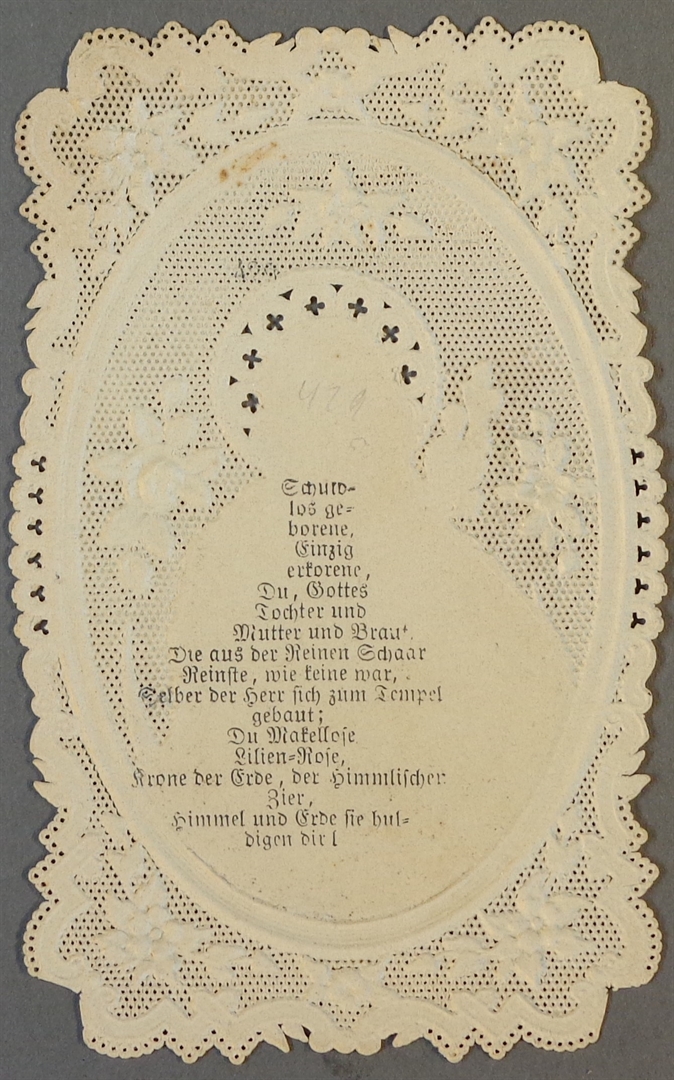 420
Schuld-
los ge-
borene,
Einzig
erkorene,
Du, Gottes
Tochter und
Mutter und Braut.
Die aus der Reinen Schaar
Reinste, wie keine war,
Selber der Herr sich zum Tempel
gebaut;
Du Makellose
Lilien-Rose,
Krone der Erde, der Himmlischen
Zier,
Himmel und Erde sie hul-
digen dir!